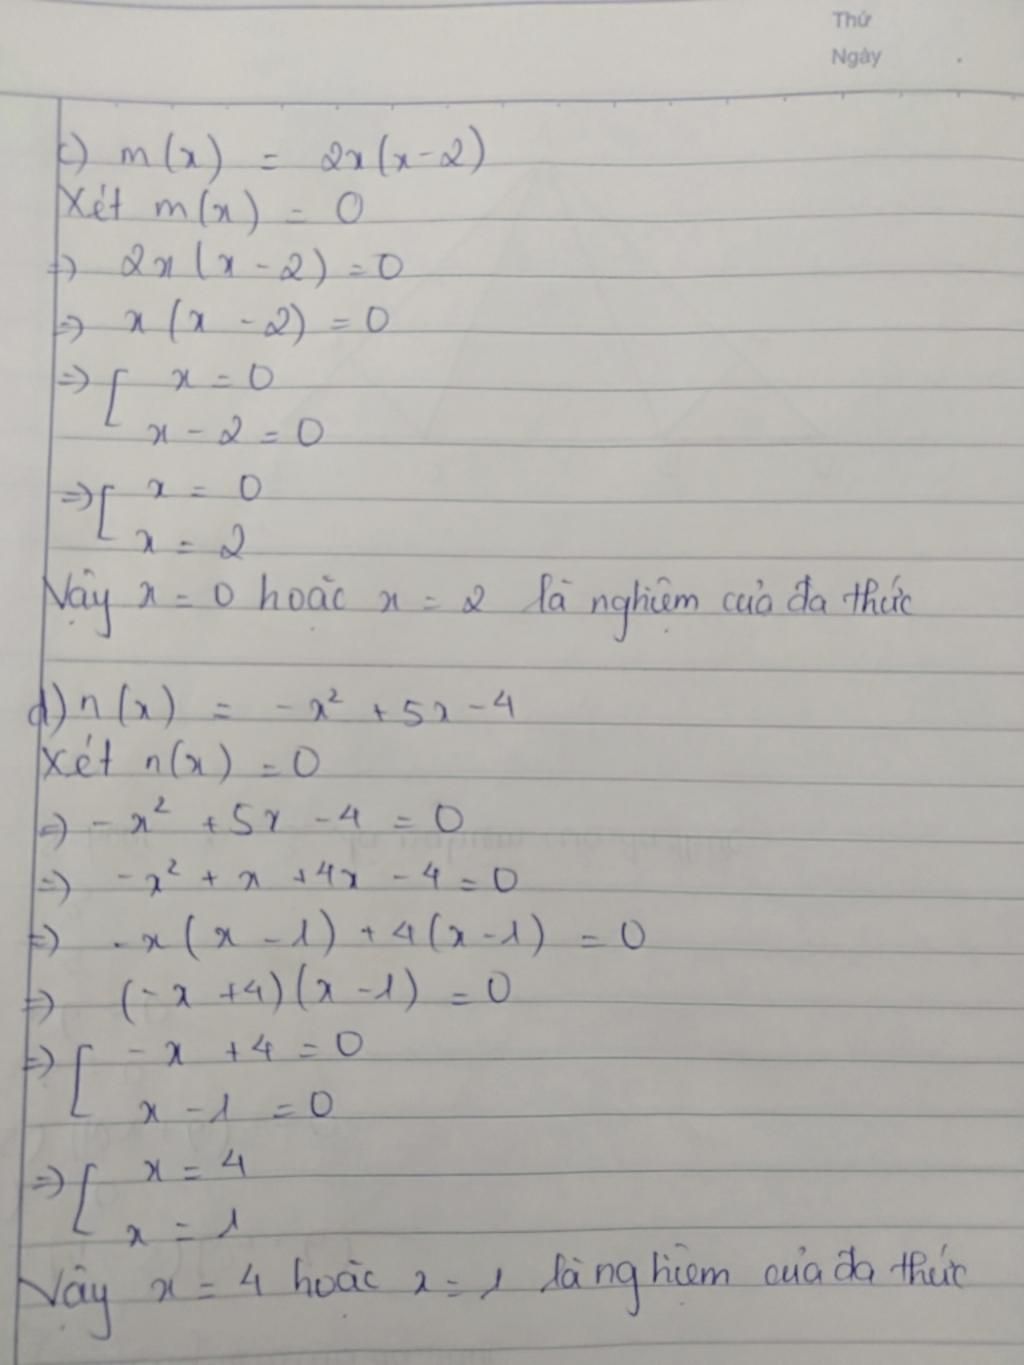 Thứ
Ngày
c) m(x) = 2x(x-2)
Xét m(x) = 0
=> 2x(x-2) = 0
=> x(x-2) = 0
=> [ x = 0
x - 2 = 0
=> [ x = 0
x = 2
Vậy x = 0 hoặc x = 2 là nghiệm của đa thức
d) n(x) = -x² + 5x - 4
Xét n(x) = 0
=> -x² + 5x - 4 = 0
=> -x² + x + 4x - 4 = 0
=> -x(x-1) + 4(x-1) = 0
=> (-x+4)(x-1) = 0
=> [ -x + 4 = 0
x - 1 = 0
=> [ x = 4
x = 1
Vậy x = 4 hoặc x = 1 là nghiệm của đa thức